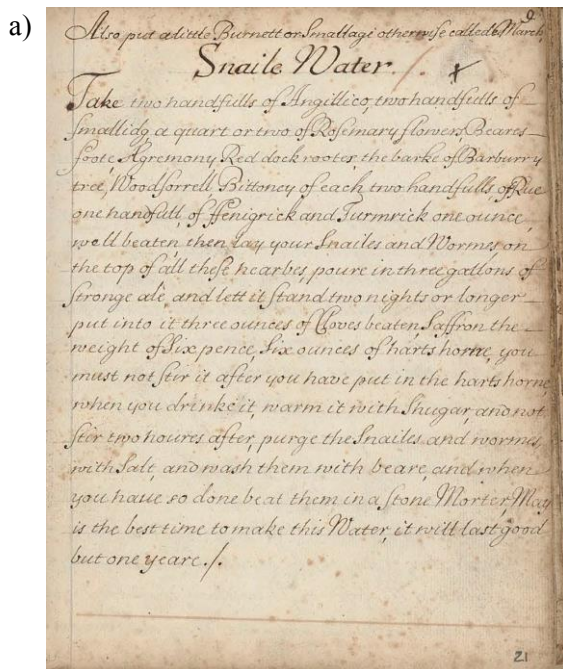 a)
Also put a little Burnett or Smallagi otherwise called March
Snaile Water./.
Take two handfulls of Angillico, two handfulls of
smallidg a quart or two of Rosemary flowers, Beares
foote, Agremony, Red dock rootes, the barke of Barburry
tree, Woodsorrell, Bittoney of each two handfulls of Rue
one handfull, of ffenigrick and Turmrick one ounce,
well beaten, then lay your Snailes and Wormes on
the top of all these hearbes, poure in three gallons of
stronge ale, and lett it stand two nights or longer
put into it three ounces of Cloves beaten, Saffron the
weight of Six pence, Six ounces of harts horne, you
must not stir it after you have put in the harts horne,
when you drinke it, warm it with Shugar, and not
stir two houres after, purge the Snailes and wormes,
with Salt, and wash them with beare, and when
you have so done beat them in a stone Morter, May
is the best time to make this Water, it will last good
but one yeare./.
21